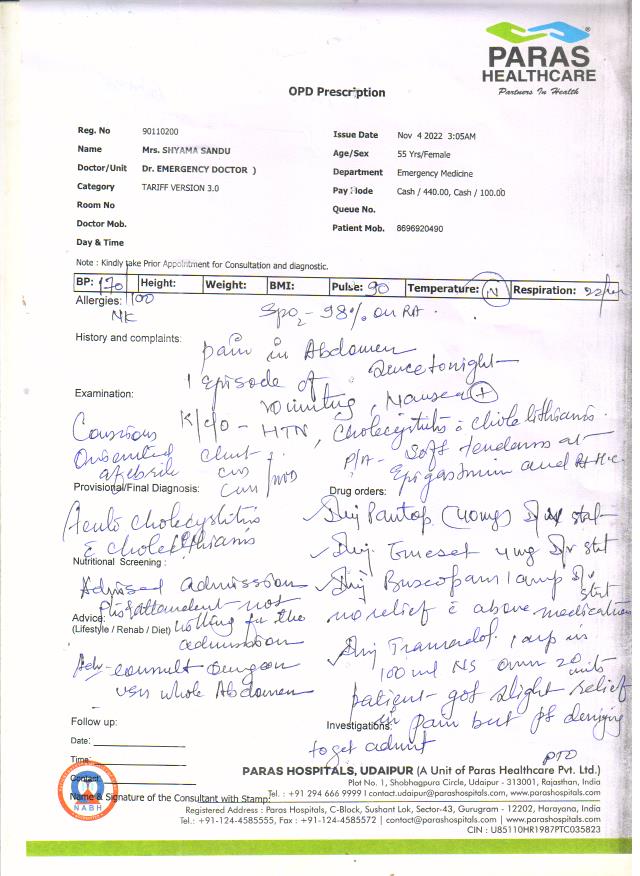 PARAS
HEALTHCARE
Partners In Health
OPD Prescription
Reg. No 90110200
Issue Date Nov 4 2022 3:05AM
Name Mrs. SHYAMA SANDU
Age/Sex 55 Yrs/Female
Doctor/Unit Dr. EMERGENCY DOCTOR )
Department Emergency Medicine
Category TARIFF VERSION 3.0
Pay Mode Cash / 440.00, Cash / 100.00
Room No
Queue No.
Doctor Mob.
Patient Mob. 8696920490
Day & Time
Note : Kindly take Prior Appointment for Consultation and diagnostic.
BP: 170 Height: Weight: BMI: Pulse: 90 Temperature: N Respiration: 22/min
Allergies: 100
NK SpO2 - 98% on RA.
History and complaints:
pain in Abdomen
since tonight
1 Episode of
vomiting, Nausea +
Examination:
K/c/o - HTN, Cholecystitis c cholelithiasis.
Conscious
Oriented
afebrile
chest
cvs
cns
NAD
P/A - Soft tenderness at
Epigastrium and Rt H.C.
Provisional/Final Diagnosis:
Acute cholecystitis
c cholelithiasis
Drug orders:
Inj Pantop (40mg) IV stat
Inj. Emeset 4mg IV stat
Nutritional Screening :
Advised admission
Pt & attendent not
willing for the
admission
Inj Buscopan 1 amp IV
stat
no relief c above medication
Advice:
(Lifestyle / Rehab / Diet)
Inj Tramadol 1 amp in
100 ml NS over 20
Adv - consult Surgeon
USG whole Abdomen
patient got slight relief
in pain but pt denying
to get admit
Follow up:
Investigations:
Date:
PTO
Time:
Contact
Name & Signature of the Consultant with Stamp:
NABH
PARAS HOSPITALS, UDAIPUR (A Unit of Paras Healthcare Pvt. Ltd.)
Plot No. 1, Shobhagpura Circle, Udaipur - 313001, Rajasthan, India
Tel. : +91 294 666 9999 I contact.udaipur@parashospitals.com, www.parashospitals.com
Registered Address : Paras Hospitals, C-Block, Sushant Lok, Sector-43, Gurugram - 12202, Harayana, India
Tel.: +91-124-4585555, Fax : +91-124-4585572 | contact@parashospitals.com | www.parashospitals.com
CIN : U85110HR1987PTC035823